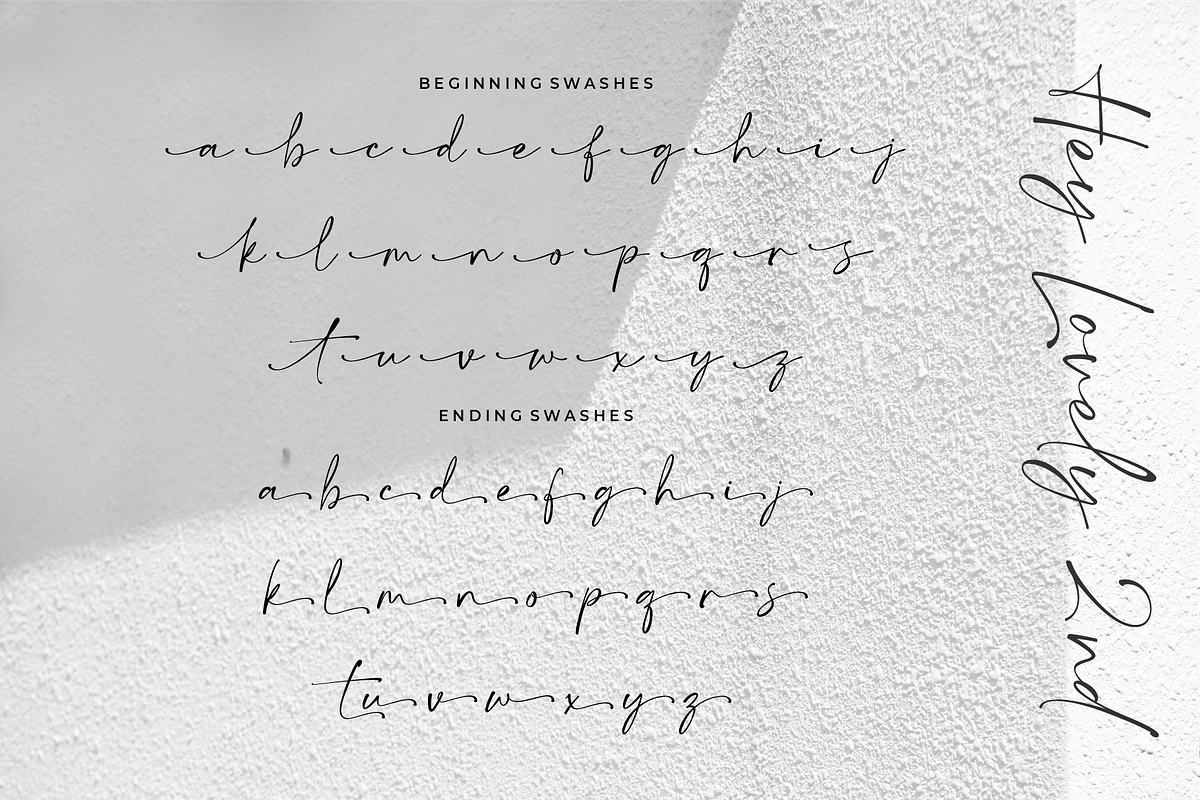 BEGINNING SWASHES
a b c d e f g h i j
k l m n o p q r s
t u v w x y z
ENDING SWASHES
a b c d e f g h i j
k l m n o p q r s
t u v w x y z
Hey Lovely 2nd